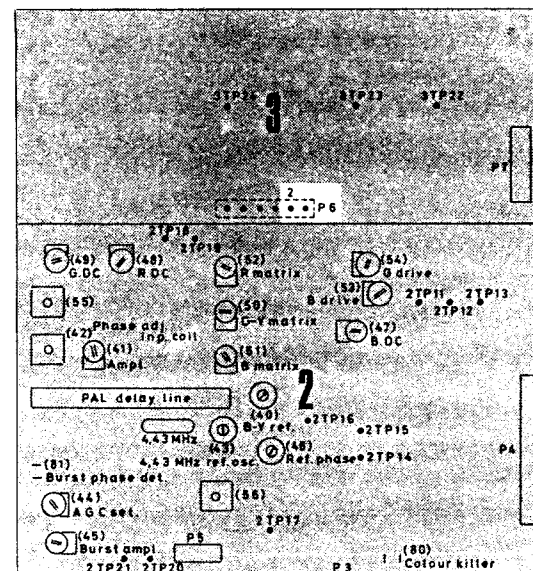 3TP24 3TP23 3TP22
3
P7
2
P6
2TP18
2TP19
(49) G.DC
(48) R.DC
(52) R matrix
(54) G drive
(53) B drive
2TP11 2TP13
2TP12
(55)
(50) G-Y matrix
(47) B.DC
(42) Phase adj inp. coil
(41) Ampl.
(51) B matrix
PAL delay line
2
(40) B-Y ref.
2TP16
4,43 MHz
(43)
4,43 MHz ref. osc.
2TP15
(46) Ref. phase
2TP14
P4
(81)
Burst phase det.
(44) AGC set.
(56)
2TP17
(45) Burst ampl.
P5
2TP21 2TP20
P3
(80)
Colour killer